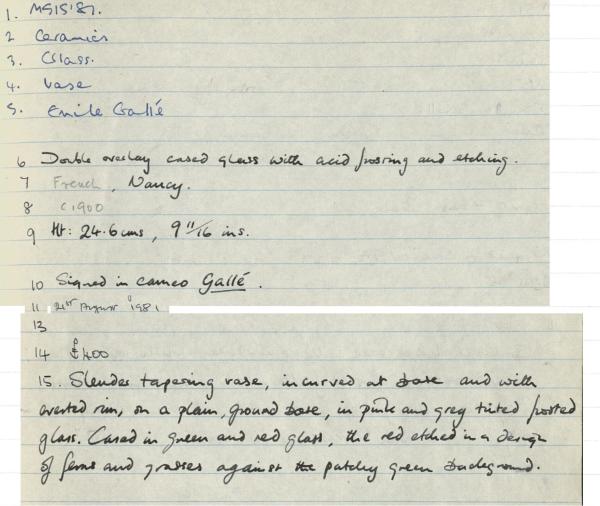 1. MG15'81.
2 Ceramics
3. Glass.
4. Vase
5. Emile Gallé
6 Double overlay cased glass with acid frosting and etching.
7 French, Nancy.
8 c1900
9 Ht: 24.6cms, 9 11/16 ins.
10 Signed in cameo Gallé.
11 21st August 1981
13
14 £400
15. Slender tapering vase, incurved at base and with
everted rim, on a plain, ground base, in pink and grey tinted frosted
glass. Cased in green and red glass, the red etched in a design
of ferns and grasses against the patchy green background.